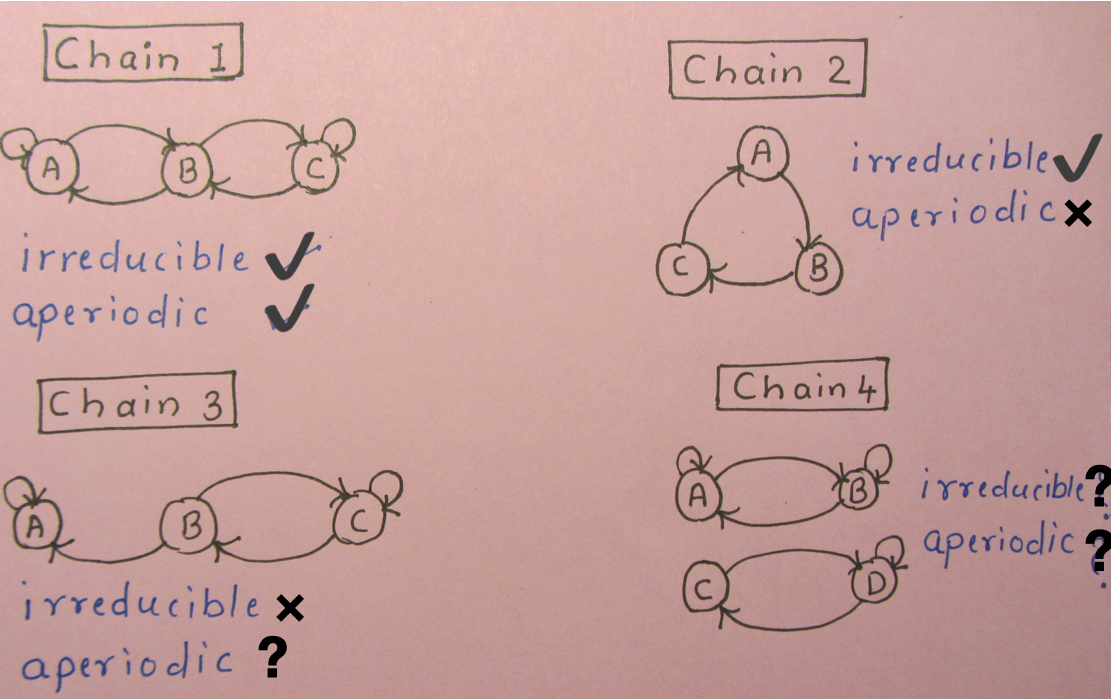 Chain 1
A B C
irreducible ✔
aperiodic ✔
Chain 2
A
C B
irreducible ✔
aperiodic ✖
Chain 3
A B C
irreducible ✖
aperiodic ?
Chain 4
A B
C D
irreducible ?
aperiodic ?